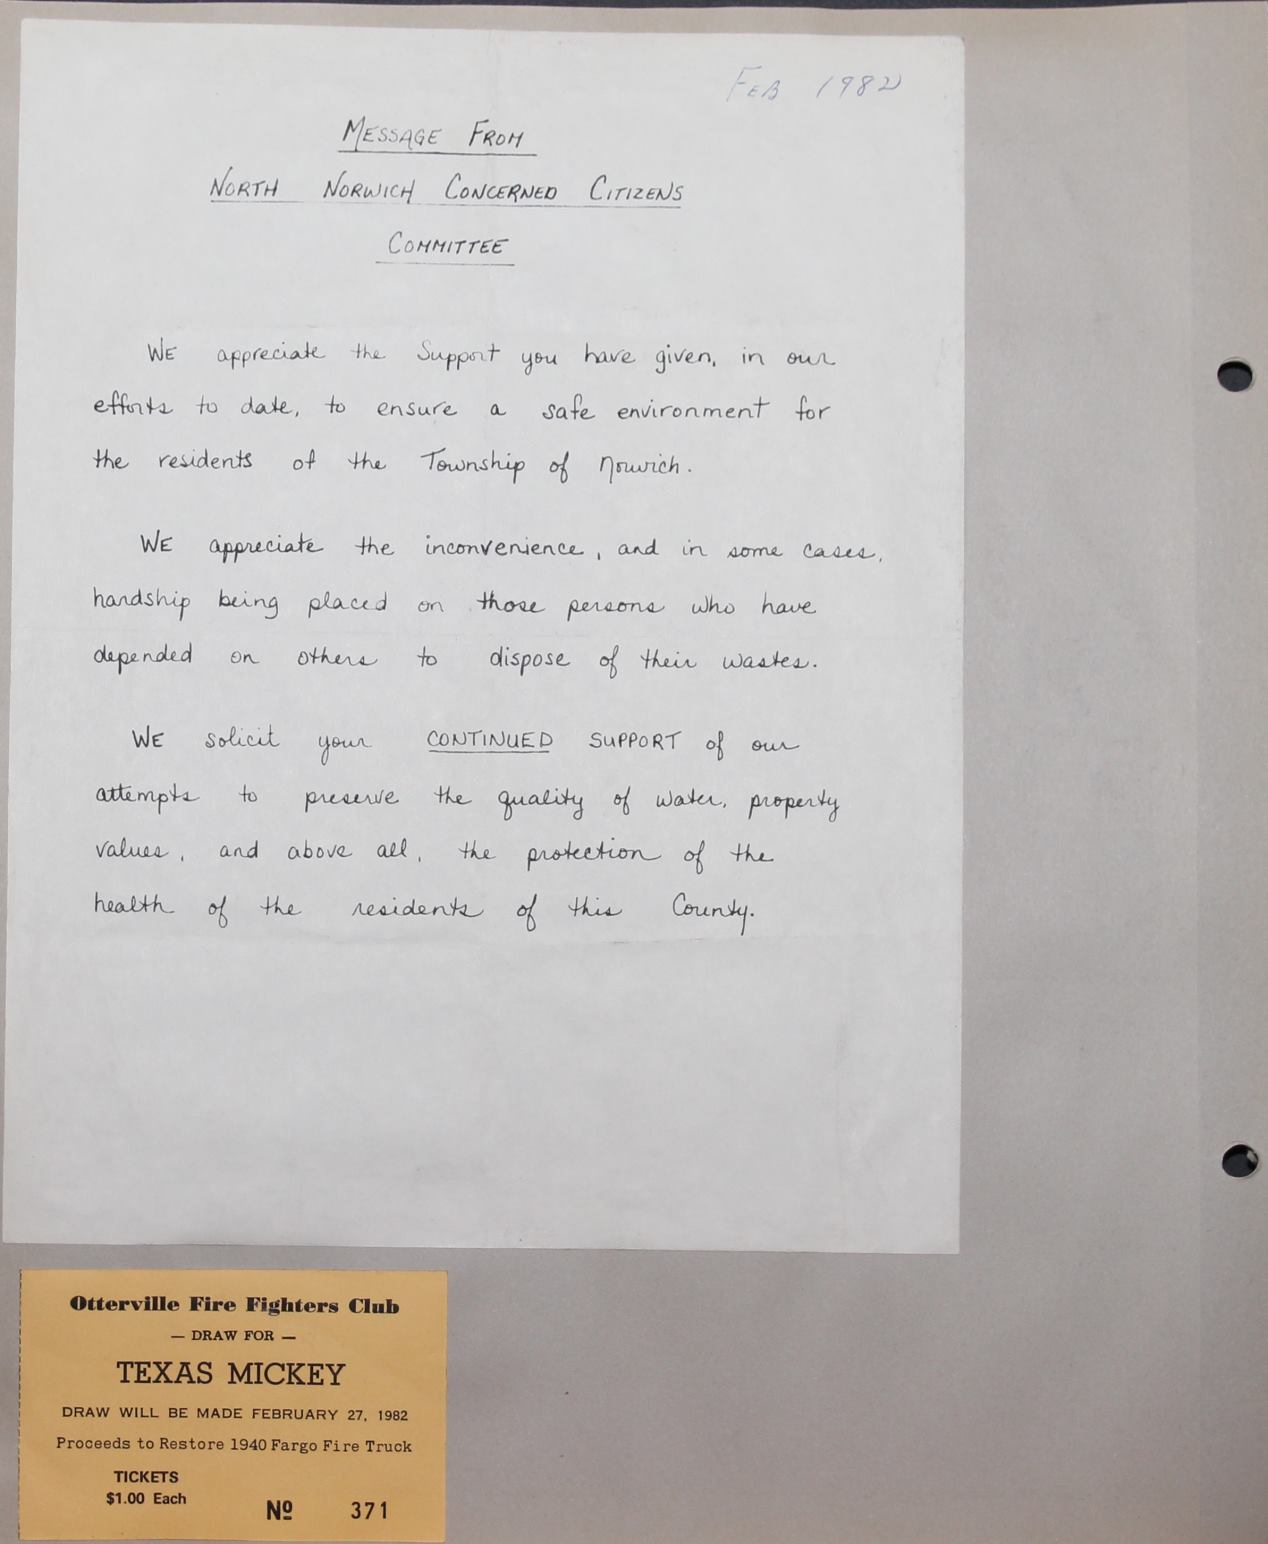 Feb 1982
Message From
North Norwich Concerned Citizens
Committee
We appreciate the Support you have given, in our
efforts to date, to ensure a safe environment for
the residents of the Township of Norwich.
We appreciate the inconvenience, and in some cases,
hardship being placed on those persons who have
depended on others to dispose of their wastes.
We solicit your CONTINUED SUPPORT of our
attempts to preserve the quality of water, property
values, and above all, the protection of the
health of the residents of this County.
Otterville Fire Fighters Club
— DRAW FOR —
TEXAS MICKEY
DRAW WILL BE MADE FEBRUARY 27, 1982
Proceeds to Restore 1940 Fargo Fire Truck
TICKETS
$1.00 Each
Nº 371